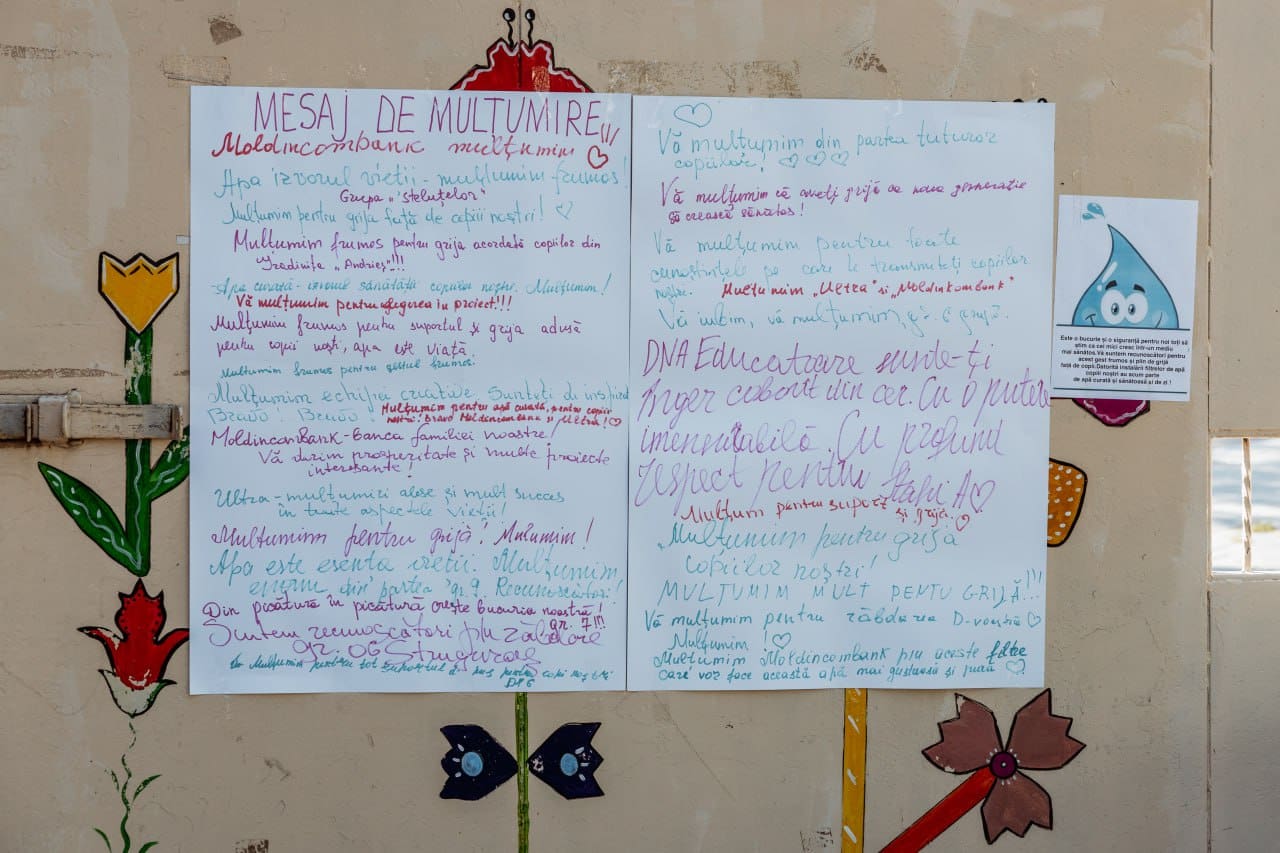 MESAJ DE MULȚUMIRE!!!
Moldincombank mulțumim ♡
Apa izvorul vieții - mulțumim frumos!
Grupa "Steluțelor"
Mulțumim pentru grija față de copiii noștri! ♡
Mulțumim frumos pentru grija acordată copiilor din
Grădinița „Andrieș"!!!
-Apa curată - izvorul sănătății copiilor noștri. Mulțumim!
Vă mulțumim pentru alegerea în proiect!!!
Mulțumim frumos pentru suportul și grija adusă
pentru copii noști, apa este viață.
Mulțumim frumos pentru gestul frumos.
Mulțumim echipei creative. Sunteți de inspirat
Bravo! Bravo!
Mulțumim pentru apă curată, pentru copiii
noștri! Bravo Moldincombank și Ultra! ♡
MoldinconBank-banca familiei noastre!
Vă dorim prosperitate și multe proiecte
interesante!
Ultra - mulțumiri alese și mult succes
în toate aspectele vieții!
Mulțumim pentru grijă! Mulumim!
Apa este esența vieții. Mulțumim
enorm din partea gr. 9. Recunoscători!
Din picătură în picătură crește bucuria noastră!
gr. 7!!!
Suntem recunoscători p/u răbdare
gr. 06 Struguraș
Mulțumim pentru tot suportul
♡
Vă mulțumim din partea tuturor
copiilor! ♡♡♡
Vă mulțumim că aveți grijă ca noua generație
să crească sănătos!
Vă mulțumim pentru toate
cunoștințele pe care le transmiteți copiilor
noștri.
Mulțumim „Ultra" si „Moldinkombank"
Vă iubim, vă mulțumim, gr. 6 grupă.
DNA Educatoare sunte-ți
Înger coborât din cer. Cu o putere
imensitabilă. Cu profund
respect pentru
♡
Mulțum pentru suport și grija. ♡
„Mulțumim pentru grija
copiilor noștri!
MULȚUMIM MULT PENTU GRIJĂ!!!
Vă mulțumim pentru răbdarea D-voastră ♡
Mulțumim! ♡
Mulțumim Moldincombank p/u aceste filtre
care vor face această apă mai gustoasă și pură ♡
Este o bucurie și o siguranță pentru noi toți să
știm ca cei mici cresc într-un mediu
mai sănătos.Vă suntem recunoscători pentru
acest gest frumos și plin de grijă
față de copii.Datorită instalării filtrelor de apă
copiii noștri au acum parte
de apă curată și sănătoasă și de zi !